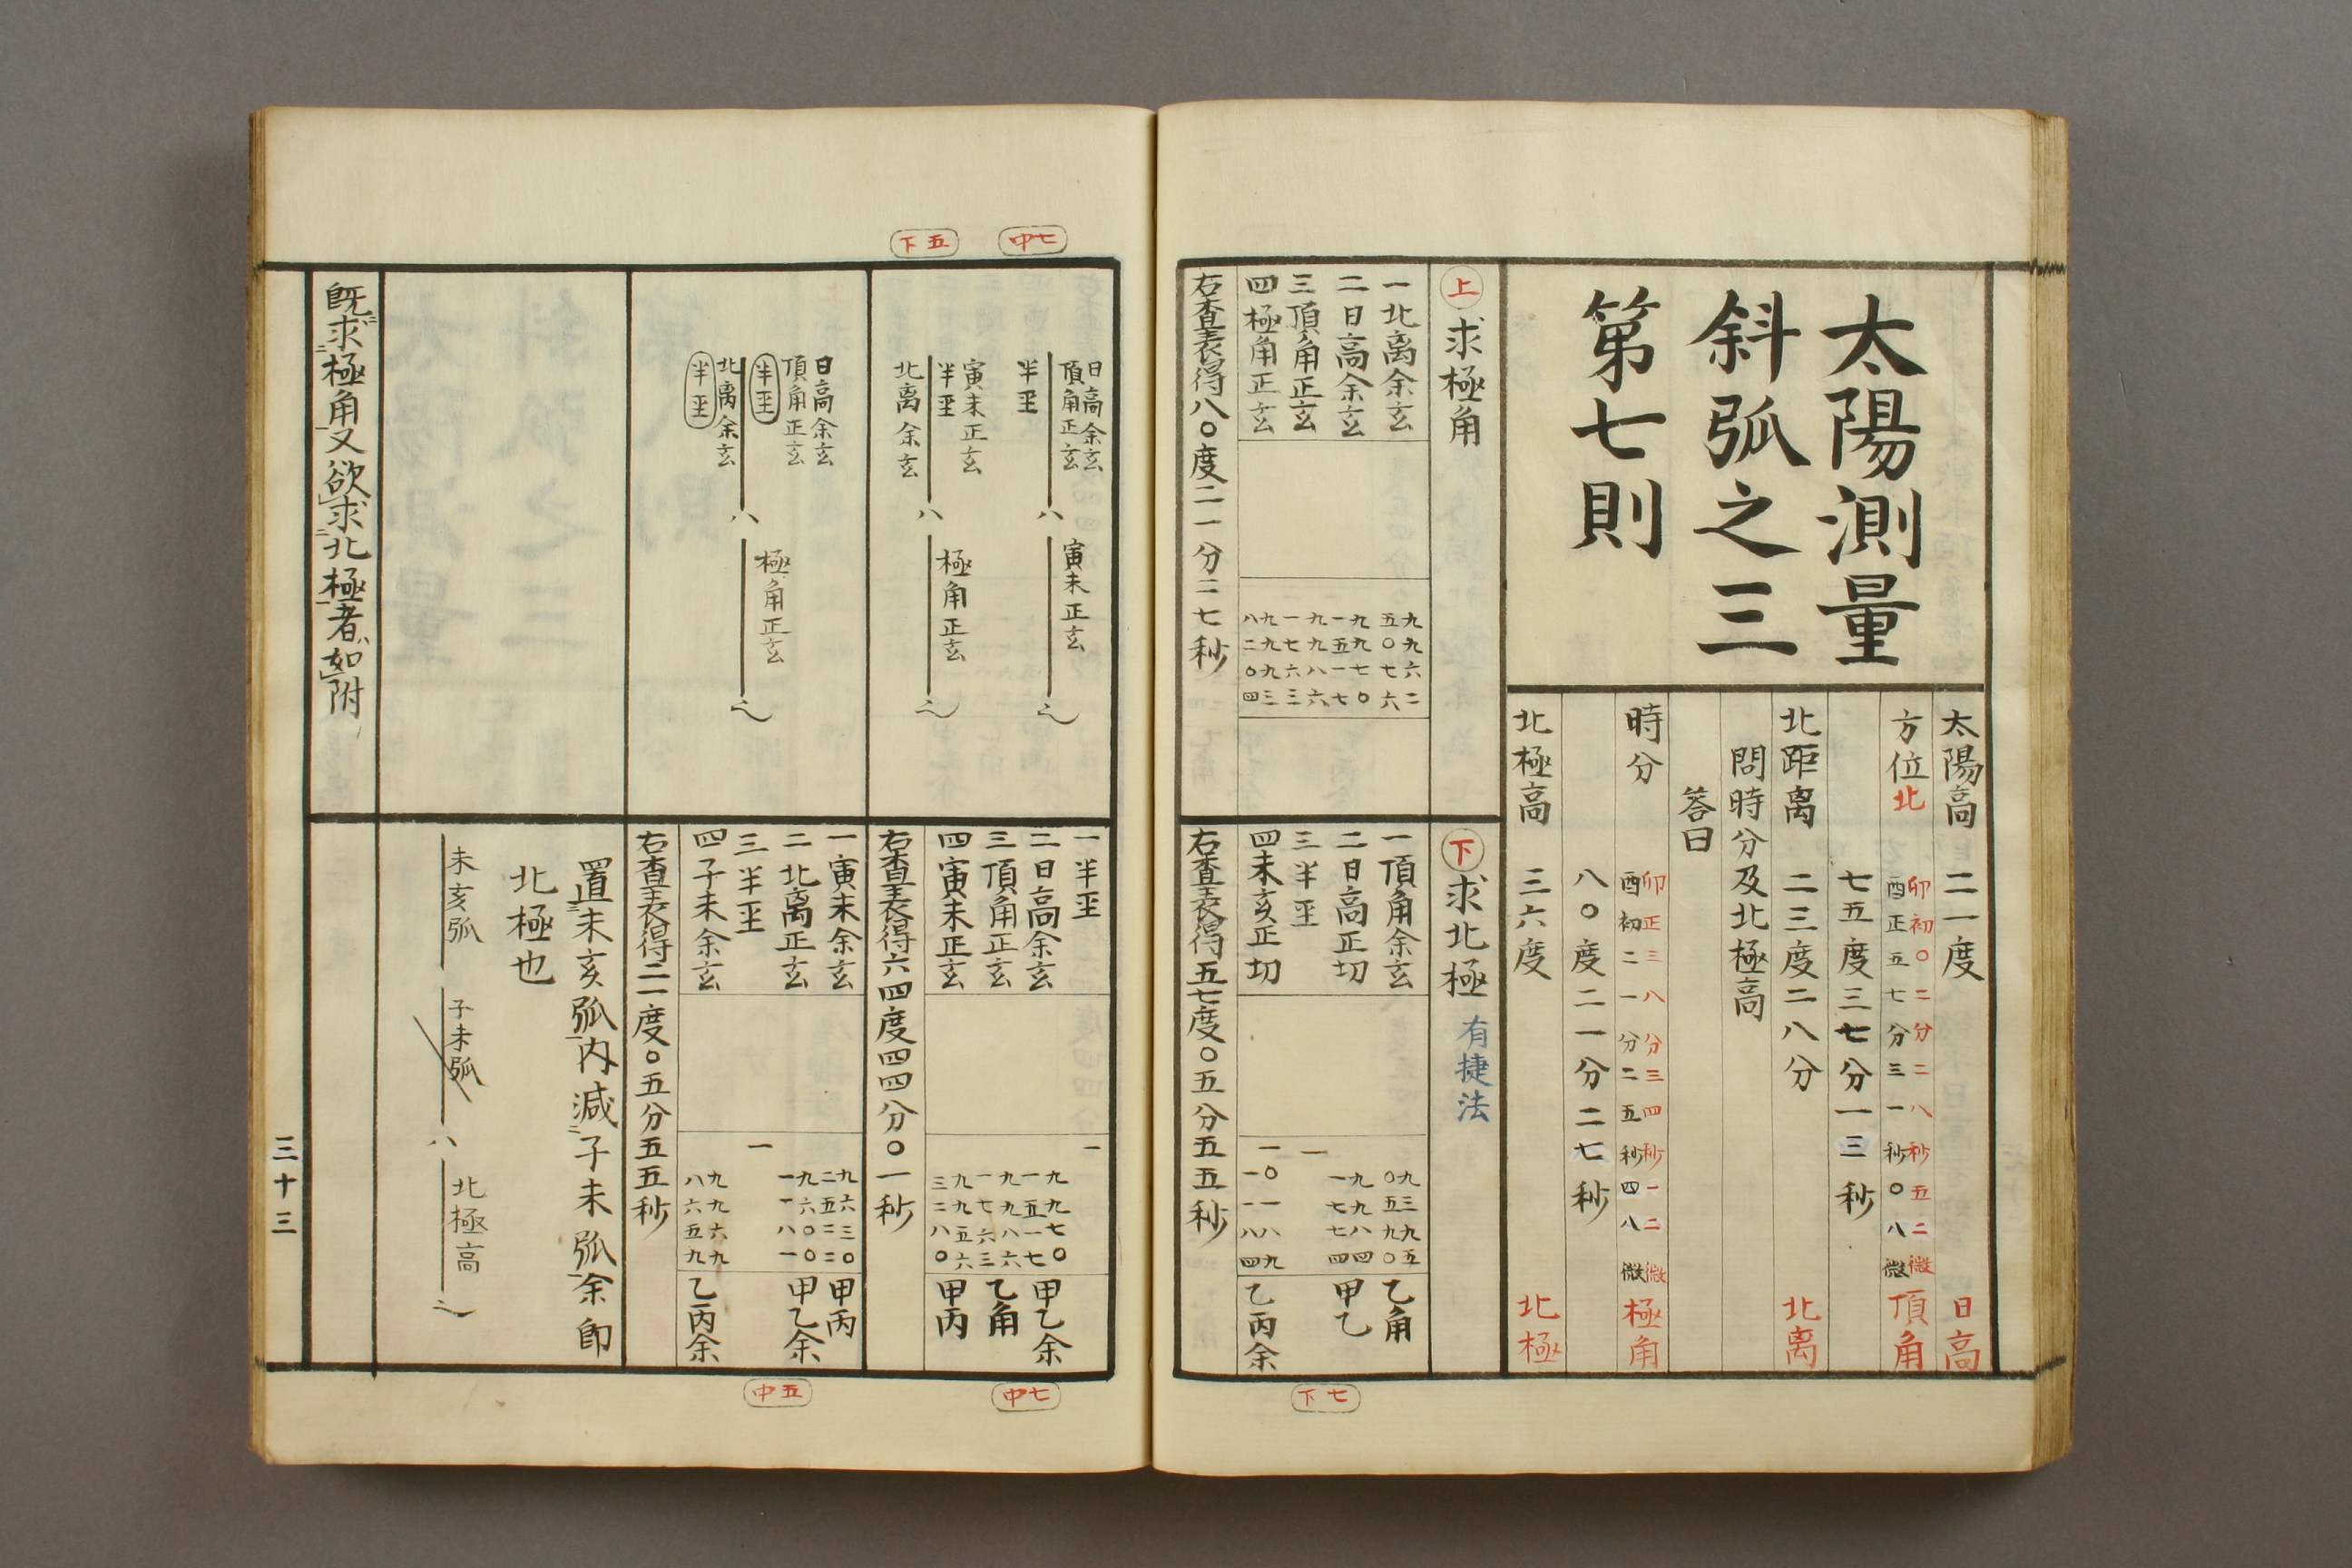 太陽測量
斜弧之三
第七則
太陽高 二一度 日高
方位北 卯初〇二分二八秒五二微 頂角
酉正五七分三一秒〇八微
七五度三七分一三秒
北距离 二三度二八分 北离
問時分及北極高
答曰
時分 卯正三八分三四秒一二微 極角
酉初二一分二五秒四八微
八〇度二一分二七秒
北極高 三六度 北極
上 求極角
一北离余玄 九九六二五〇七六
二日高余玄 九九七〇一五一七
三頂角正玄 九九八六一七六三
四極角正玄 九九九三八二〇四
右查表得八〇度二一分二七秒
下 求北極 有捷法
一頂角余玄 九三九五〇五九〇 乙角
二日高正切 九八四一七七四 甲乙
三半𡈼 一
四未亥正切 一〇一八九一一八四 乙丙余
右查表得五七度〇五分五五秒
下七
中七
下五
日高余玄
頂角正玄
半𡈼
八
寅未正玄
之
寅未正玄
半𡈼
北离余玄
八
極角正玄
之
日高余玄
頂角正玄
半𡈼
北离余玄
半𡈼
八
極角正玄
之
一半𡈼 一
二日高余玄 九九七〇一五一七 甲乙余
三頂角正玄 九九八六一七六三 乙角
四寅未正玄 九九五六三二八〇 甲丙
右查表得六四度四四分〇一秒
一寅未余玄 九六三〇二五三二 甲丙
二北离正玄 九六〇〇一一八一 甲乙余
三半𡈼 一
四子未余玄 九九六九八六五九 乙丙余
右查表得二一度〇五分五五秒
置未亥弧内減子未弧余即
北極也
未亥弧
子未弧
八
北極高
之
既求極角又欲求北極者如附
三十三
中七
中五